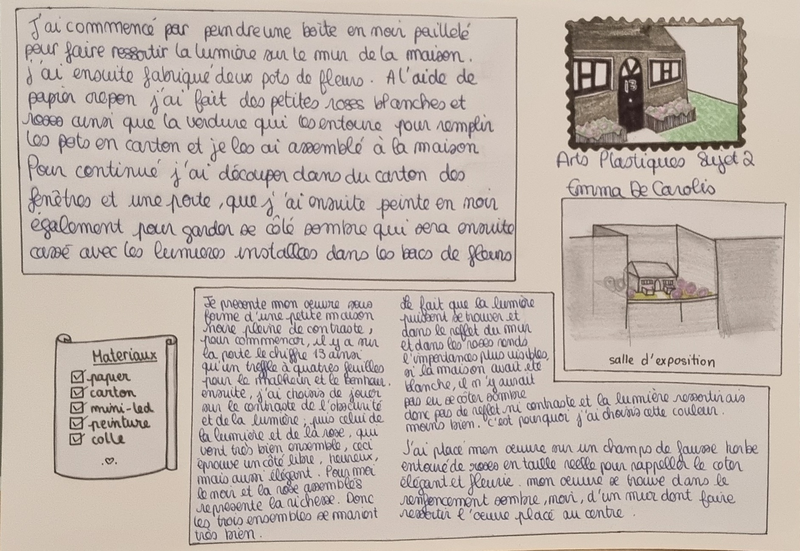 J'ai commencé par peindre une boîte en noir pailleté
pour faire ressortir la lumière sur le mur de la maison.
J'ai ensuite fabriqué deux pots de fleurs. A l'aide de
papier crepon j'ai fait des petites roses blanches et
roses ainsi que la verdure qui les entoure pour remplir
les pots en carton et je les ai assemblé à la maison
Pour continué j'ai découper dans du carton des
fenêtres et une porte, que j'ai ensuite peinte en noir
également pour garder se côté sombre qui sera ensuite
cassé avec les lumières installées dans les bacs de fleurs
13
Arts Plastiques Sujet 2
Emma De Carolis
salle d'exposition
Materiaux
papier
carton
mini-led
peinture
colle
Je presente mon œuvre sous
forme d'une petite maison
noire pleine de contraste,
pour commencer, il y a sur
la porte le chiffre 13 ainsi
qu'un trèfle à quatres feuilles
pour le malheur et le bonheur.
ensuite, j'ai choisis de jouer
sur le contraste de l'obscurité
et de la lumière, puis celui de
la lumière et de la rose, qui
vont très bien ensemble, ceci
éprouve un côté libre, heureux,
mais aussi élégant. Pour moi
le noir et la rose assemblés
représente la richesse. Donc
les trois ensembles se marient
très bien.
Le fait que la lumière
puissent se trouver et
dans le reflet du mur
et dans les roses rends
l'importances plus visibles,
si la maison avait été
blanche, il n'y aurait
pas eu se côter sombre
donc pas de reflet, ni contraste et la lumière ressortirais
moins bien. C'est pourquoi j'ai choisis cette couleur.
J'ai placé mon œuvre sur un champs de fausse herbe
entouré de roses en taille reelle pour rappeller le coter
élégant et fleurie. mon œuvre se trouve dans le
renfoncement sombre, noir, d'un mur dont faire
ressortir l'œuvre placé au centre.